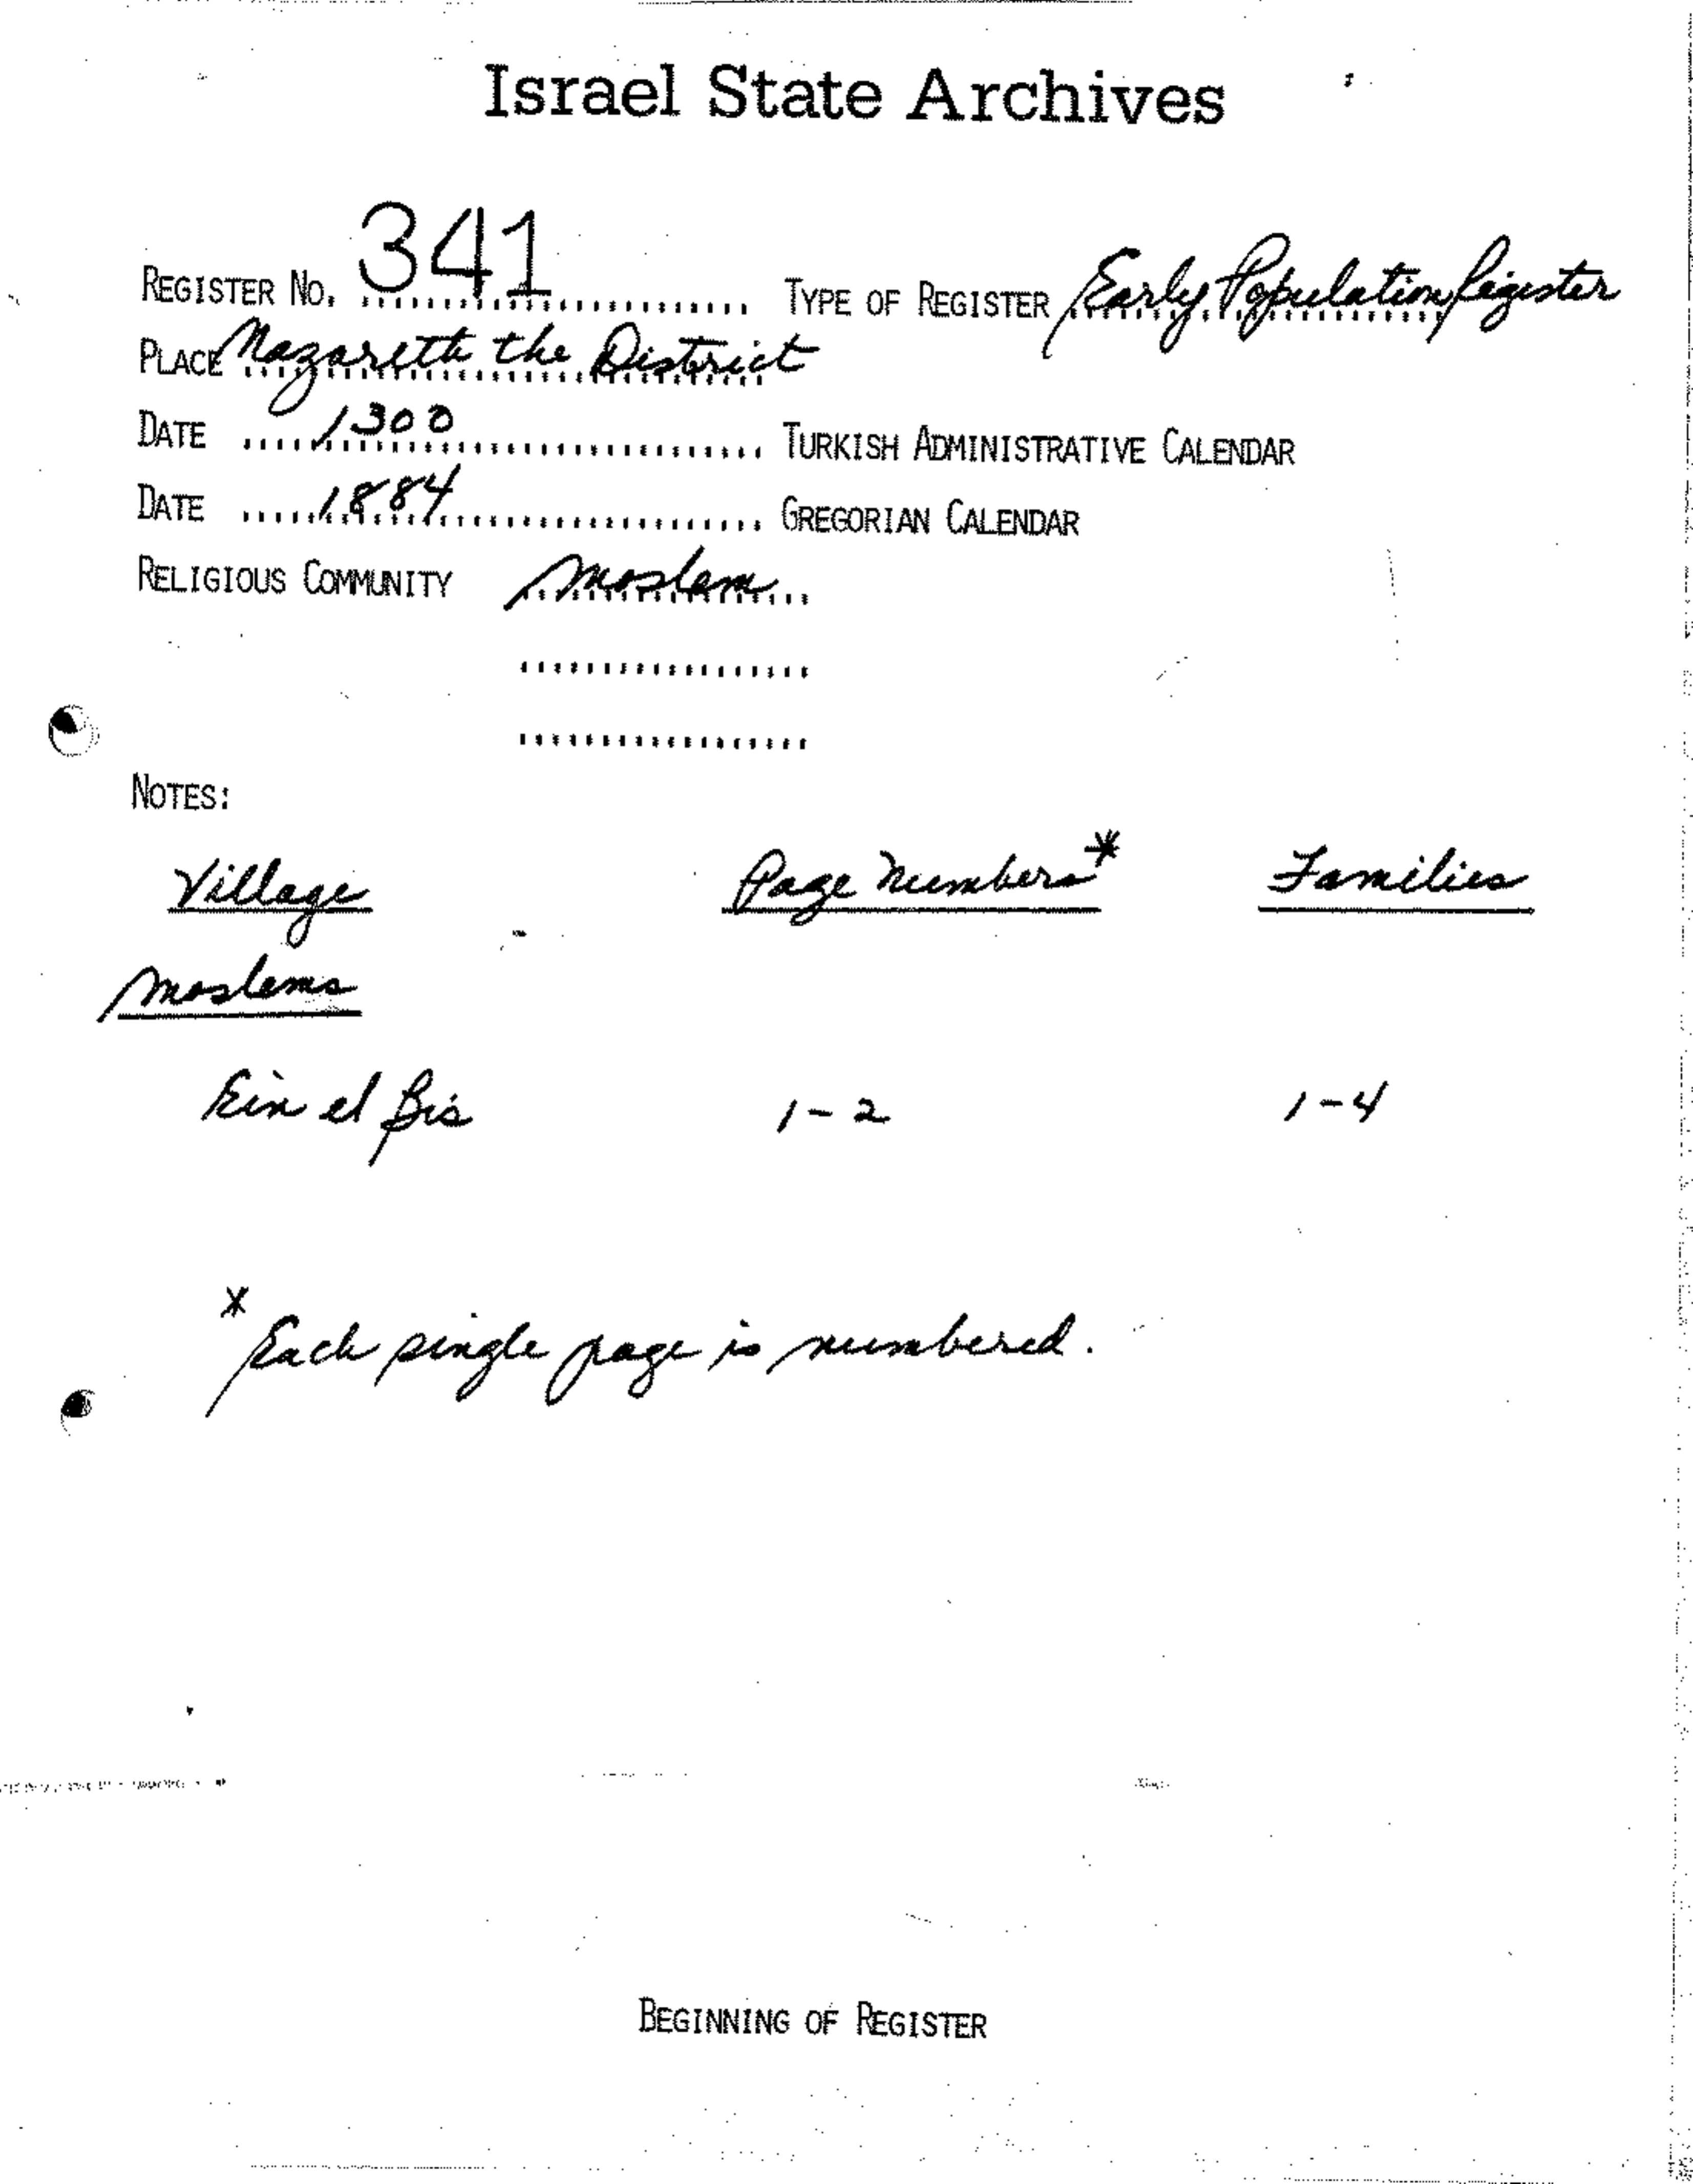 Israel State Archives
REGISTER NO. 341 TYPE OF REGISTER Early Population Register
PLACE Nazareth the District
DATE 1300 TURKISH ADMINISTRATIVE CALENDAR
DATE 1884 GREGORIAN CALENDAR
RELIGIOUS COMMUNITY Moslem
NOTES:
Village Page Numbers* Families
Moslems
Ein el Bis 1-2 1-4
* Each single page is numbered.
BEGINNING OF REGISTER